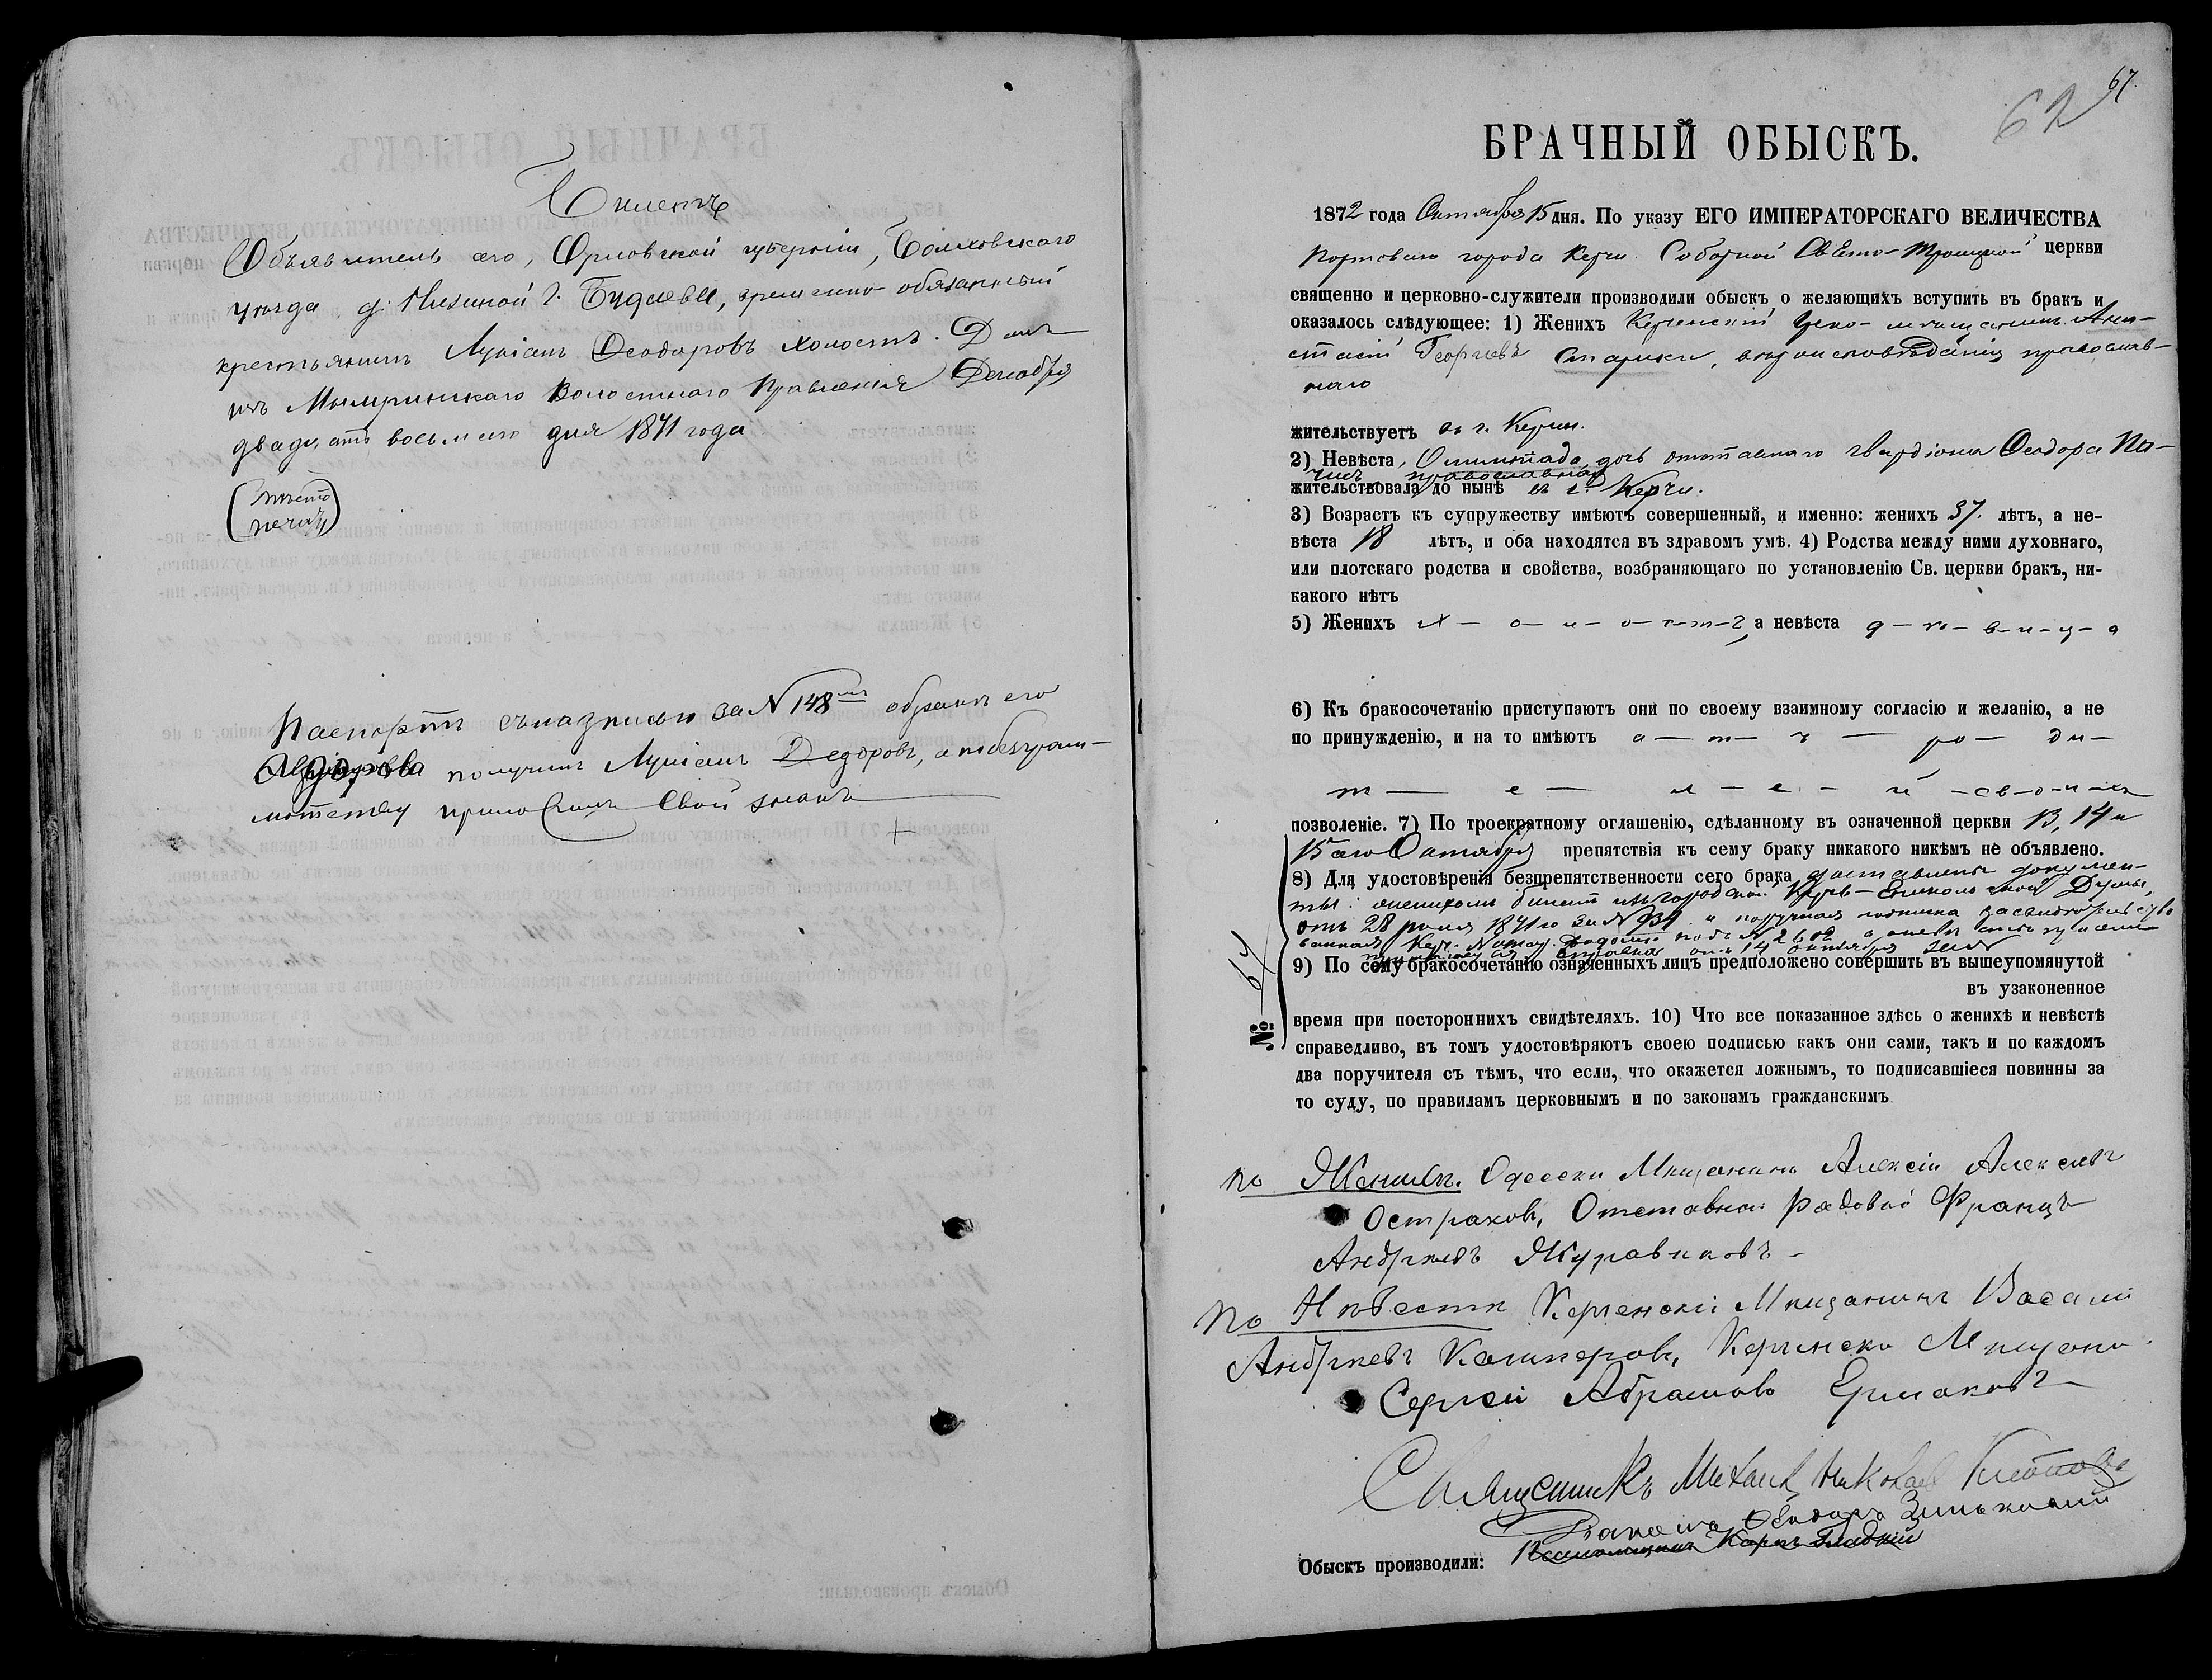 Билетъ
Объявитель сего, Орловской губерніи, Болховскаго
уѣзда д: Нижиной г. Будаевы, временно-обязанный
крестьянинъ Лукіанъ Ѳеодоровъ холостъ. Данъ
изъ Мымринскаго Волостнаго Правленія Декабря
двадцать восьмаго дня 1871 года
(мѣсто
печати)
Паспортъ съ надписью за № 148 обратно его
получилъ Лукіанъ Ѳедоровъ, а по безграм-
мотству приложилъ свой знакъ
+
67.
62
БРАЧНЫЙ ОБЫСКЪ.
1872 года Октября 15 дня. По указу ЕГО ИМПЕРАТОРСКАГО ВЕЛИЧЕСТВА
Портоваго города Керчи Соборной Свято-Троицкой церкви
священно и церковно-служители производили обыскъ о желающихъ вступить въ бракъ и
оказалось слѣдующее: 1) Женихъ Керченскій Цехо- мѣщанинъ Ана-
стасій Георгіевъ вѣроисповѣданія православ-
наго
жительствуетъ въ г. Керчи.
2) Невѣста, Олимпіада дочь отставнаго Ѳеодора Па-
православная
жительствовала до нынѣ въ г. Керчи.
3) Возрастъ къ супружеству имѣютъ совершенный, и именно: женихъ 37. лѣтъ, а не-
вѣста 18 лѣтъ, и оба находятся въ здравомъ умѣ. 4) Родства между ними духовнаго,
или плотскаго родства и свойства, возбраняющаго по установленію Св. церкви бракъ, ни-
какого нѣтъ
5) Женихъ х-о-л-о-с-т-ъ, а невѣста д-ѣ-в-и-ц-а
6) Къ бракосочетанію приступаютъ они по своему взаимному согласію и желанію, а не
по принужденію, и на то имѣютъ о-т-ъ - ро-ди-
т-е-л-е-й -св-о-и-хъ
позволеніе. 7) По троекратному оглашенію, сдѣланному въ означенной церкви 13, 14 и
15аго Октября препятствія къ сему браку никакого никѣмъ не объявлено.
8) Для удостовѣренія безпрепятственности сего брака доставлены докумен-
ты: женихомъ билетъ изъ городской Керчь-Еникольской Думы,
отъ 28 1871 го за № 934
подъ № 2602
отъ 14 октября
№ 64
9) По сему бракосочетанію означенныхъ лицъ предположено совершить въ вышеупомянутой
въ узаконенное
время при постороннихъ свидѣтеляхъ. 10) Что все показанное здѣсь о женихѣ и невѣстѣ
справедливо, въ томъ удостовѣряютъ своею подписью какъ они сами, такъ и по каждомъ
два поручителя съ тѣмъ, что если, что окажется ложнымъ, то подписавшіеся повинны за
то суду, по правиламъ церковнымъ и по законамъ гражданскимъ
по Женихѣ. Одесски Мещанинъ Алексій Алексѣевъ
Остраковъ, Отставной Рядовой Францъ
Андрѣевъ Журавиковъ-
По Невѣсти Керченскій Мищанинъ Васали
Андрѣевъ Качперовъ, Керченски Мищани
Сергѣй Абрамовъ Ермаковъ
Священникъ Михаилъ Николаев
Ѳеодоръ Зиньковскій
Обыскъ производили: Карпъ Гладкій